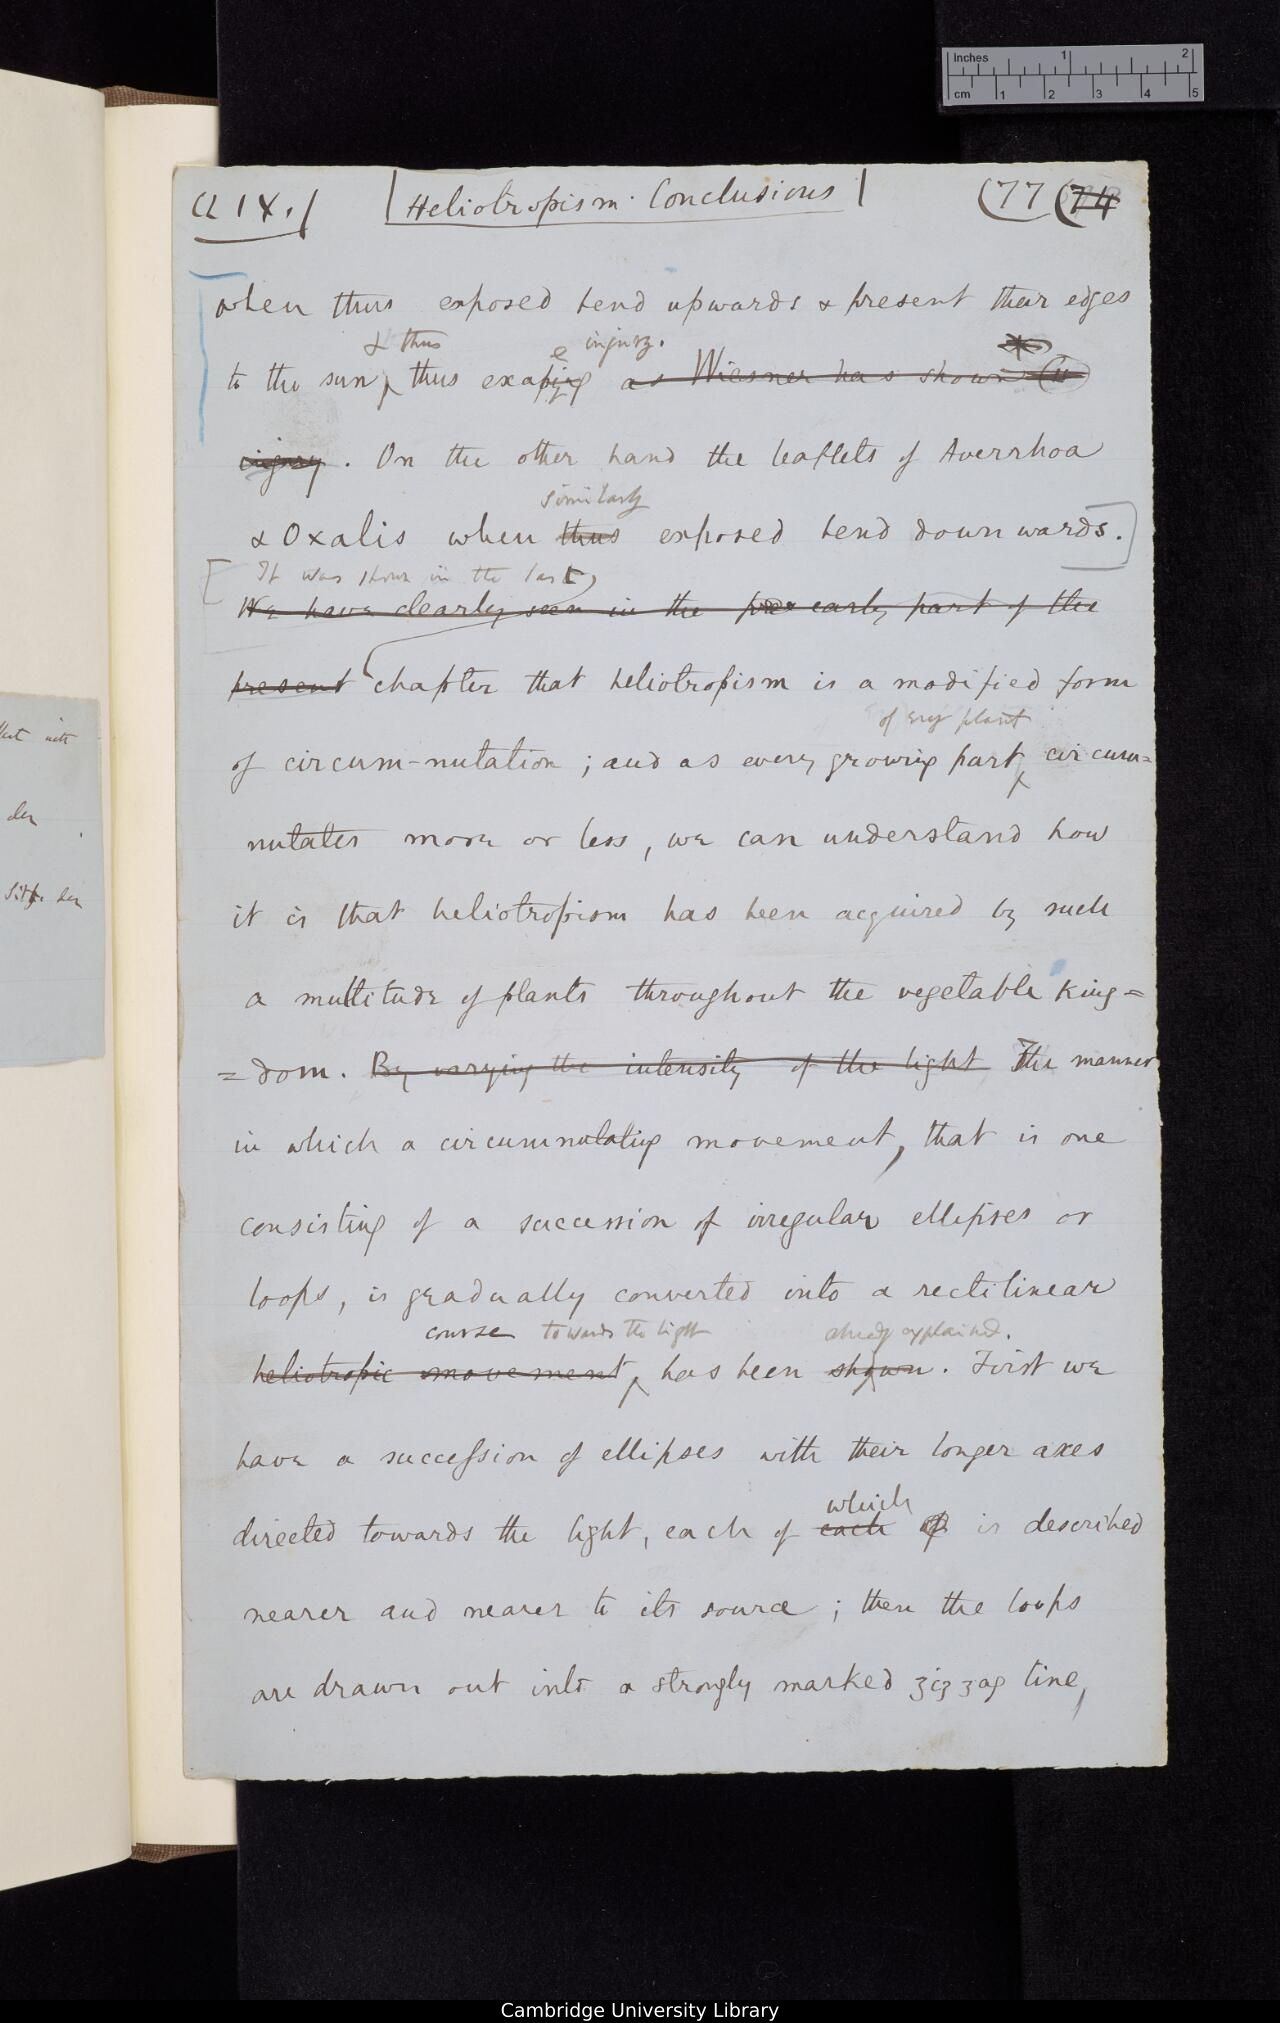 Inches 1 2
cm 1 2 3 4 5
Ch IX.
Heliotropism. Conclusions
(77 (74
when thus exposed bend upwards & present their edges
& thus e injury.
to the sun, thus as Wiesner has shown
injury. On the other hand the leaflets of Averrhoa
similarly
& Oxalis when thus exposed bend downwards.]
[It was shown in the last
We have clearly seen in the early part of the
present chapter that heliotropism is a modified form
of every plant
of circum-nutation; and as every growing part circum=
nutates more or less, we can understand how
it is that heliotropism has been acquired by such
a multitude of plants throughout the vegetable King=
=dom. By varying the intensity of the light The manner
in which a circumnutating movement, that is one
consisting of a succession of irregular ellipses or
loops, is gradually converted into a rectilinear
course towards the light already explained.
heliotropic movement, has been shown. First we
have a succession of ellipses with their longer axes
which
directed towards the light, each of each of is described
nearer and nearer to its source; then the loops
are drawn out into a strongly marked zig zag line,
der
Cambridge University Library